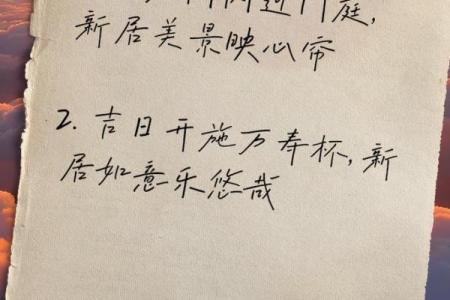 庭,
新居美景映心帘
2. 吉日开施万寿杯, 新
居如意乐悠哉